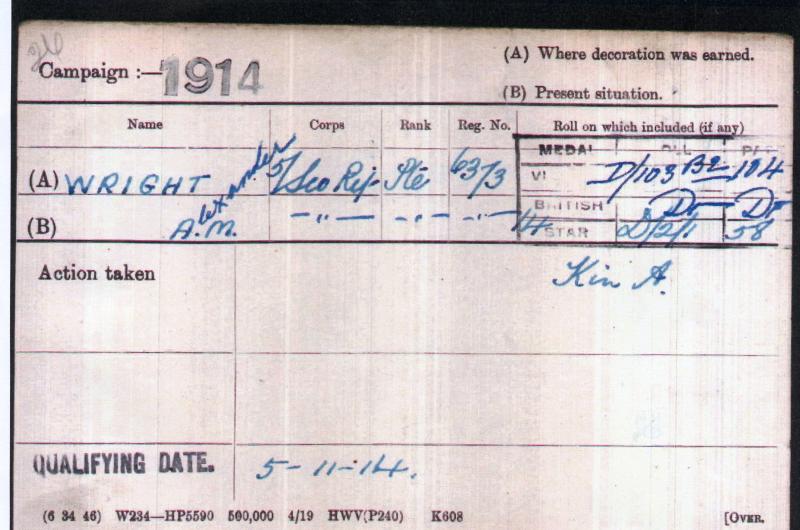 26
(A) Where decoration was earned.
Campaign :—1914
(B) Present situation.
Name Corps Rank Reg. No. Roll on which included (if any)
MEDAL ROLL PAGE
(A) WRIGHT 5/Sco Rif- Pte 6373 VI D/103 B2 104
BRITISH Do— Do
(B) A.M. Alexander —"— —"— —"— 14 STAR D/2/1 58
Action taken Kin A.
QUALIFYING DATE. 5-11-14.
(6 34 46) W234—HP5590 500,000 4/19 HWV(P240) K608 [OVER.